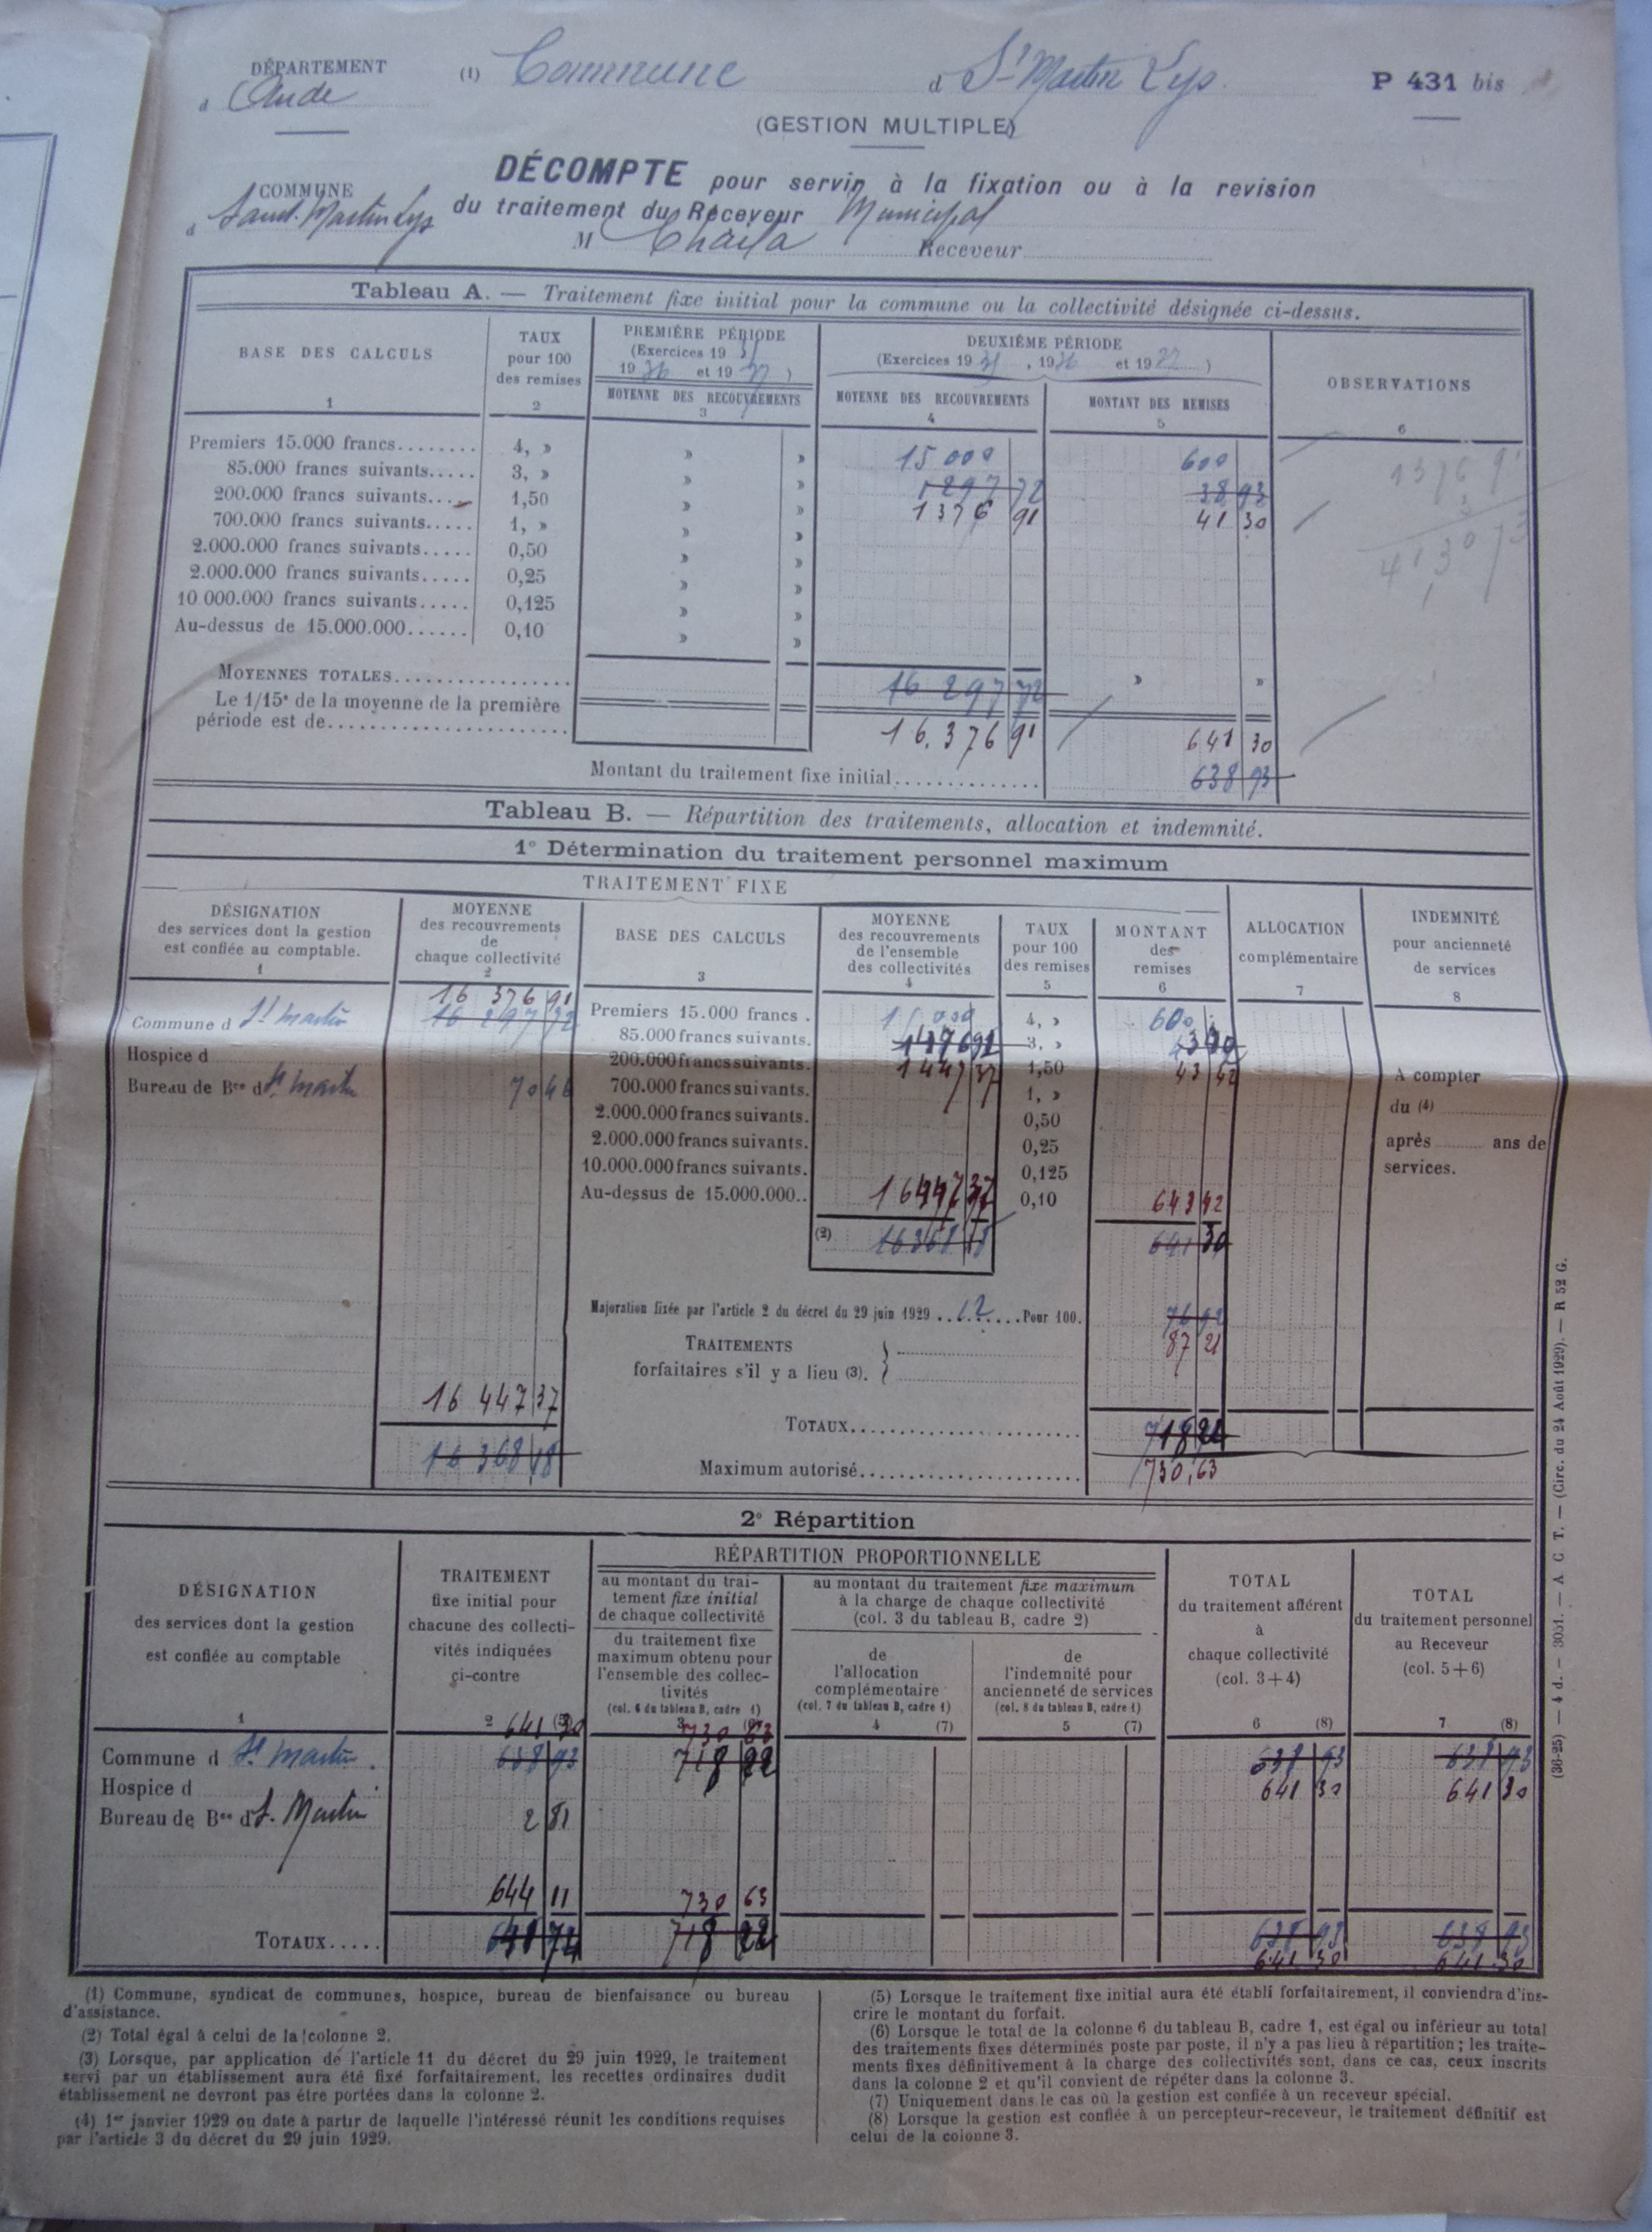 DÉPARTEMENT (1) Commune d St Martin Lys. P 431 bis
d Aude
(GESTION MULTIPLE)
DÉCOMPTE pour servir à la fixation ou à la revision
COMMUNE
d Saint-Martin Lys du traitement du Receveur Municipal
M Receveur
Tableau A. — Traitement fixe initial pour la commune ou la collectivité désignée ci-dessus.
BASE DES CALCULS
1
TAUX
pour 100
des remises
2
PREMIÈRE PÉRIODE
(Exercices 19
19 36 et 19 )
MOYENNE DES RECOUVREMENTS
3
DEUXIÈME PÉRIODE
(Exercices 19 , 1936 et 19 )
MOYENNE DES RECOUVREMENTS
4
MONTANT DES REMISES
5
OBSERVATIONS
6
Premiers 15.000 francs........ 4, » » » 15 000 600
85.000 francs suivants..... 3, » » » 1297 72 38 93
200.000 francs suivants.... 1,50 » » 1376 91 41 30
700.000 francs suivants..... 1, » » »
2.000.000 francs suivants..... 0,50 » »
2.000.000 francs suivants..... 0,25 » »
10 000.000 francs suivants..... 0,125 » »
Au-dessus de 15.000.000...... 0,10 » »
1376 91
3
41,30 73
MOYENNES TOTALES................. 16 297 72 » »
Le 1/15e de la moyenne de la première
période est de...................... 16.376 91 641 30
Montant du traitement fixe initial.............. 638 93
Tableau B. — Répartition des traitements, allocation et indemnité.
1° Détermination du traitement personnel maximum
TRAITEMENT FIXE
DÉSIGNATION
des services dont la gestion
est confiée au comptable.
1
MOYENNE
des recouvrements
de
chaque collectivité
2
BASE DES CALCULS
3
MOYENNE
des recouvrements
de l'ensemble
des collectivités
4
TAUX
pour 100
des remises
5
MONTANT
des
remises
6
ALLOCATION
complémentaire
7
INDEMNITÉ
pour ancienneté
de services
8
16 376 91
Commune d St Martin 16 297 72
Hospice d
Bureau de Bce d St Martin 70 46
Premiers 15.000 francs . 15 000 4, » 600
85.000 francs suivants. 3, »
200.000 francs suivants. 1447 37 1,50 43 42
700.000 francs suivants. 1, »
2.000.000 francs suivants. 0,50
2.000.000 francs suivants. 0,25
10.000.000 francs suivants. 0,125
Au-dessus de 15.000.000.. 16447 37 0,10 643 42
(2) 16368 18 641 30
A compter
du (4)
après ans de
services.
Majoration fixée par l'article 2 du décret du 29 juin 1929 ..12.....Pour 100. 76 92
87 21
TRAITEMENTS
forfaitaires s'il y a lieu (3).
16 447 37
TOTAUX........................ 718 22
16 368 18
Maximum autorisé....................... 730,63
2° Répartition
DÉSIGNATION
des services dont la gestion
est confiée au comptable
1
TRAITEMENT
fixe initial pour
chacune des collecti-
vités indiquées
ci-contre
2 (5)
RÉPARTITION PROPORTIONNELLE
au montant du trai-
tement fixe initial
de chaque collectivité
du traitement fixe
maximum obtenu pour
l'ensemble des collec-
tivités
(col. 6 du tableau B, cadre 1)
3 (6)
au montant du traitement fixe maximum
à la charge de chaque collectivité
(col. 3 du tableau B, cadre 2)
de
l'allocation
complémentaire
(col. 7 du tableau B, cadre 1)
4 (7)
de
l'indemnité pour
ancienneté de services
(col. 8 du tableau B, cadre 1)
5 (7)
TOTAL
du traitement afférent
à
chaque collectivité
(col. 3+4)
6 (8)
TOTAL
du traitement personnel
au Receveur
(col. 5+6)
7 (8)
641 30 730 63
Commune d St Martin . 638 93 718 22 638 93 638 93
Hospice d 641 30 641 30
Bureau de Bce d St. Martin 2 81
644 11 730 63
TOTAUX..... 641 74 718 22 638 93 638 93
641 30 641 30
(1) Commune, syndicat de communes, hospice, bureau de bienfaisance ou bureau
d'assistance.
(2) Total égal à celui de la colonne 2.
(3) Lorsque, par application de l'article 11 du décret du 29 juin 1929, le traitement
servi par un établissement aura été fixé forfaitairement, les recettes ordinaires dudit
établissement ne devront pas être portées dans la colonne 2.
(4) 1er janvier 1929 ou date à partir de laquelle l'intéressé réunit les conditions requises
par l'article 3 du décret du 29 juin 1929.
(5) Lorsque le traitement fixe initial aura été établi forfaitairement, il conviendra d'ins-
crire le montant du forfait.
(6) Lorsque le total de la colonne 6 du tableau B, cadre 1, est égal ou inférieur au total
des traitements fixes déterminés poste par poste, il n'y a pas lieu à répartition ; les traite-
ments fixes définitivement à la charge des collectivités sont, dans ce cas, ceux inscrits
dans la colonne 2 et qu'il convient de répéter dans la colonne 3.
(7) Uniquement dans le cas où la gestion est confiée à un receveur spécial.
(8) Lorsque la gestion est confiée à un percepteur-receveur, le traitement définitif est
celui de la colonne 3.
(36-25) — 4 d. — 3051. — A C T. — (Circ. du 24 Août 1929). — R 52 G.